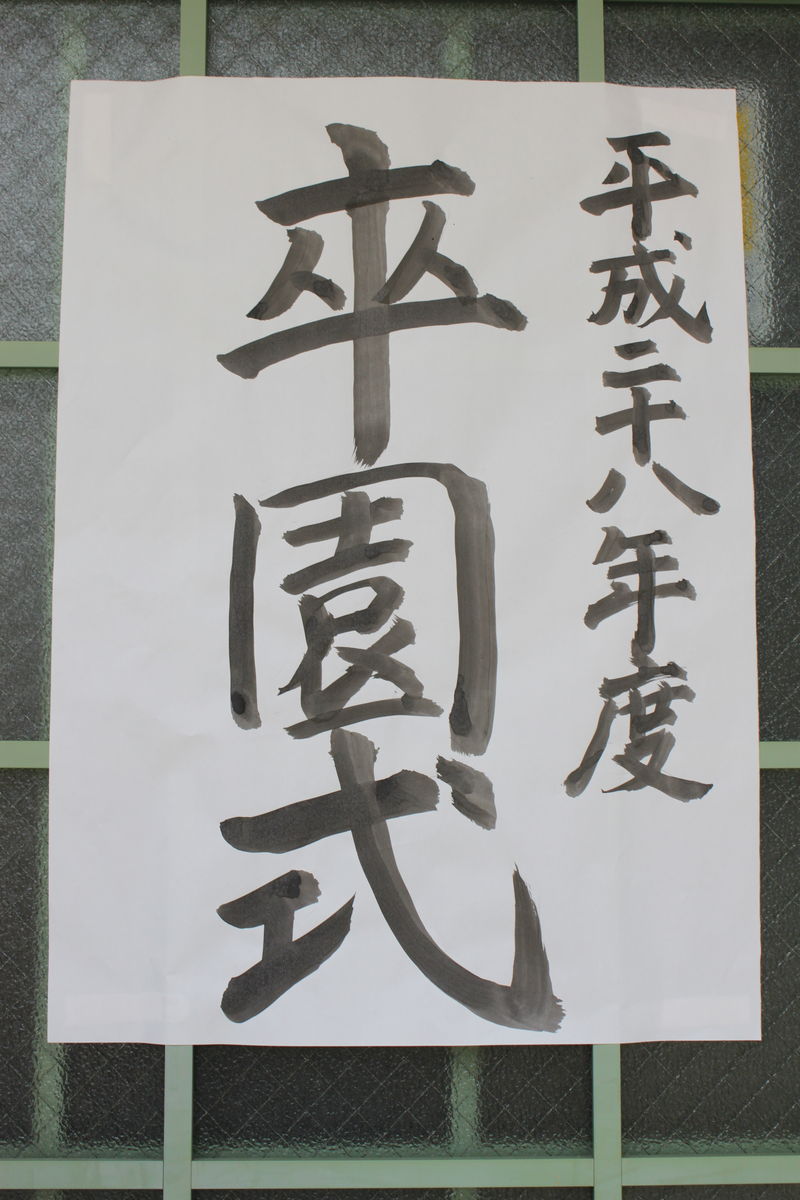 平成二十八年度
卒園式